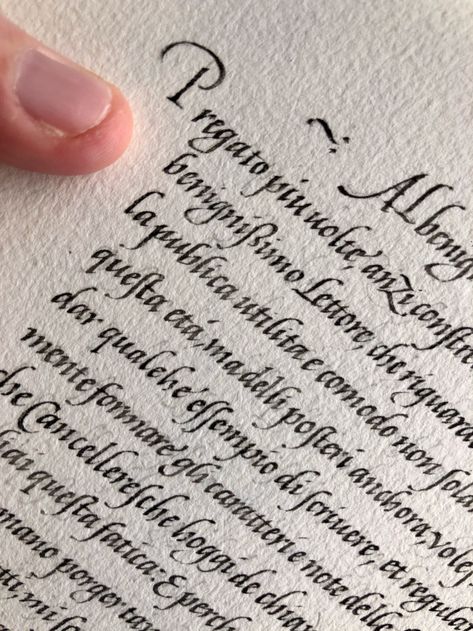 ~: Al benig
Pregato piu volte, anzi conſt
benignißimo Lettore, che riguard
la publica utilita e comodo non ſol
queſta etá, ma delli poſteri anchora, voleſ
dar qualche' eſſempio di ſcriuere, et regula
mente formare' gli caratteri e note delle
he Cancellereſche hoggi de chia
iai queſta fatica: E perch
mano porger tan
tti, mi ſo